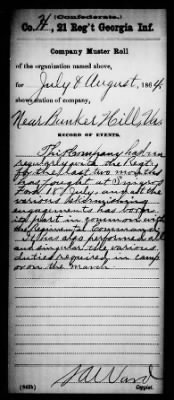 (Confederate.)
Co. H, 21 Reg't Georgia Inf.
Company Muster Roll
of the organization named above,
for July & August, 1864.
shows station of company,
Near Bunker Hill, Va
RECORD OF EVENTS.
This Company has in
regular with the Regt.
for the last two months
has fought at
Ford 18 July, and the
various skirmishing
engagements has borne
its part in common with
the Regimental Command
It has also performed all
and singular the various
duties required in camp
or on the march
Ward
Copyist.